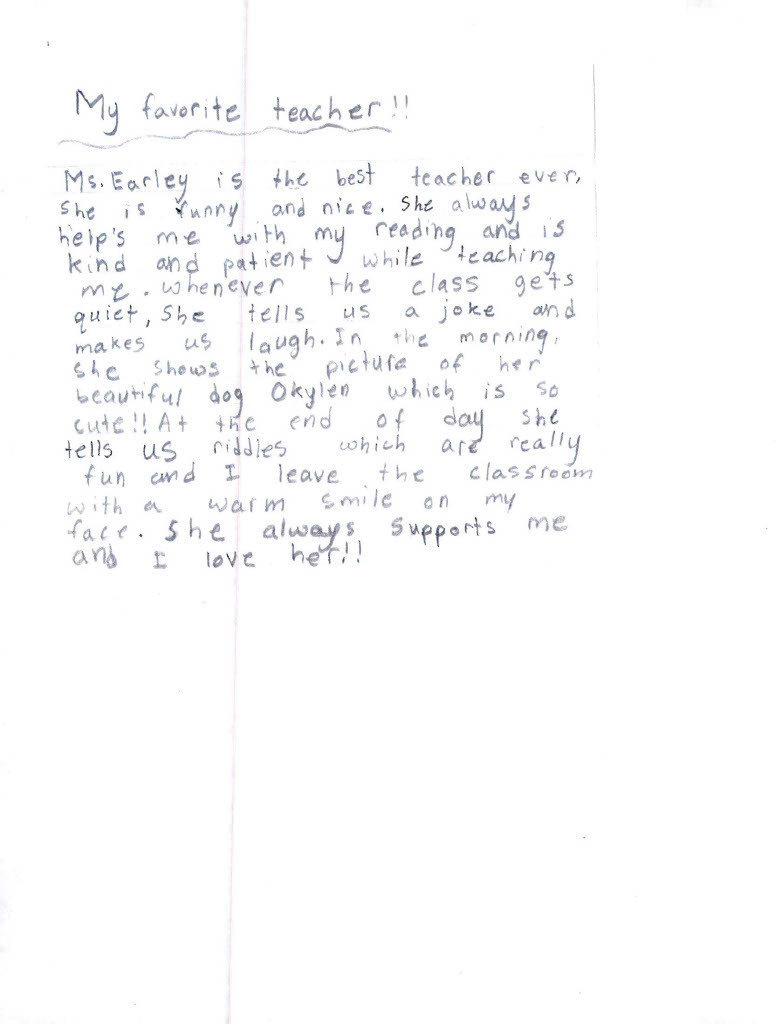 My favorite teacher!!
Ms. Earley is the best teacher ever,
She is funny and nice. She always
help's me with my reading and is
kind and patient while teaching
me. Whenever the class gets
quiet, She tells us a joke and
makes us laugh. In the morning,
she shows the picture of her
beautiful dog Okylen which is so
cute!! At the end of day she
tells us riddles which are really
fun and I leave the classroom
with a warm smile on my
face. She always supports me
and I love her!!